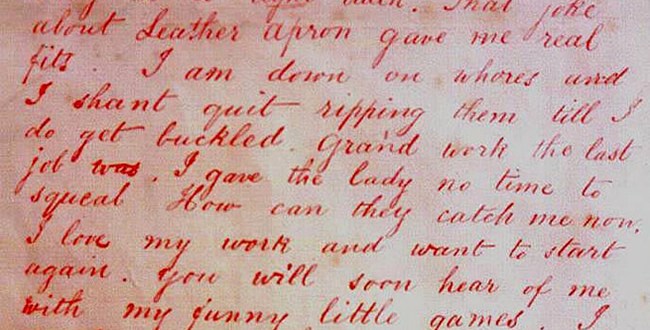 That joke
about Leather apron gave me real
fits. I am down on whores and
I shant quit ripping them till I
do get buckled. Grand work the last
job was. I gave the lady no time to
squeal How can they catch me now.
I love my work and want to start
again. You will soon hear of me
with my funny little games I